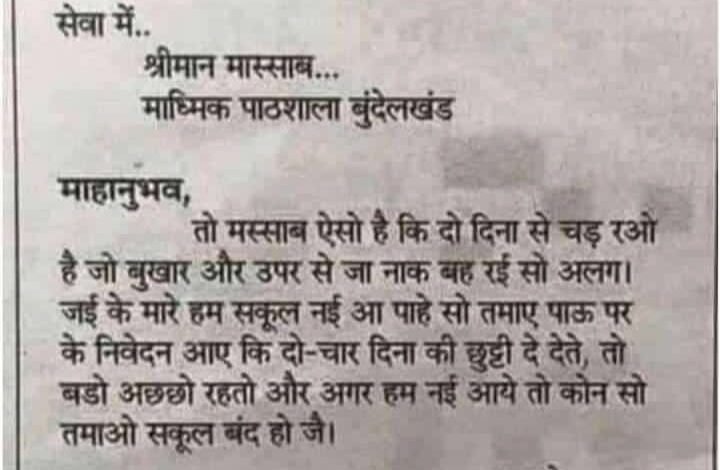 सेवा में..
श्रीमान मास्साब...
माध्मिक पाठशाला बुंदेलखंड
माहानुभव,
तो मस्साब ऐसो है कि दो दिना से चड़ रओ
है जो बुखार और उपर से जा नाक बह रई सो अलग।
जई के मारे हम सकूल नई आ पाहे सो तमाए पाऊ पर
के निवेदन आए कि दो-चार दिना की छुट्टी दे देते, तो
बडो अछछो रहतो और अगर हम नई आये तो कोन सो
तमाओ सकूल बंद हो जै।